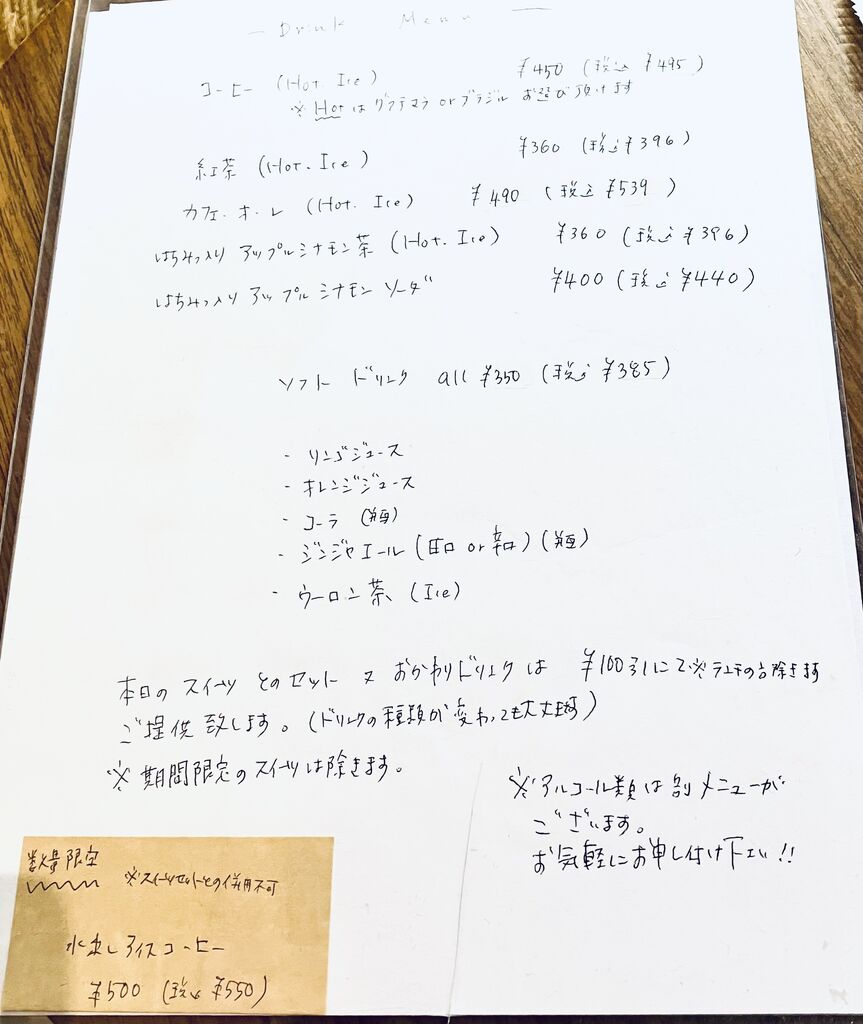 — Drink Menu —
コーヒー (Hot. Ice) ¥450 (税込 ¥495)
※ Hot は グァテマラ or ブラジル お選び頂けます
紅茶 (Hot. Ice) ¥360 (税込 ¥396)
カフェ・オ・レ (Hot. Ice) ¥490 (税込 ¥539)
はちみつ入り アップルシナモン茶 (Hot. Ice) ¥360 (税込 ¥396)
はちみつ入り アップルシナモン ソーダ ¥400 (税込 ¥440)
ソフト ドリンク all ¥350 (税込 ¥385)
・リンゴジュース
・オレンジジュース
・コーラ (瓶)
・ジンジャエール (甘口 or 辛口) (瓶)
・ウーロン茶 (Ice)
本日の スイーツ とのセット 又 おかわりドリンク は ¥100引にて※ランチの方除きます
ご提供致します。(ドリンクの種類が変わっても大丈夫です)
※ 期間限定のスイーツは除きます。
※アルコール類は別メニューが
ございます。
お気軽にお申し付け下さい!!
数量限定
※スイーツセットとの併用不可
水出しアイスコーヒー
¥500 (税込 ¥550)